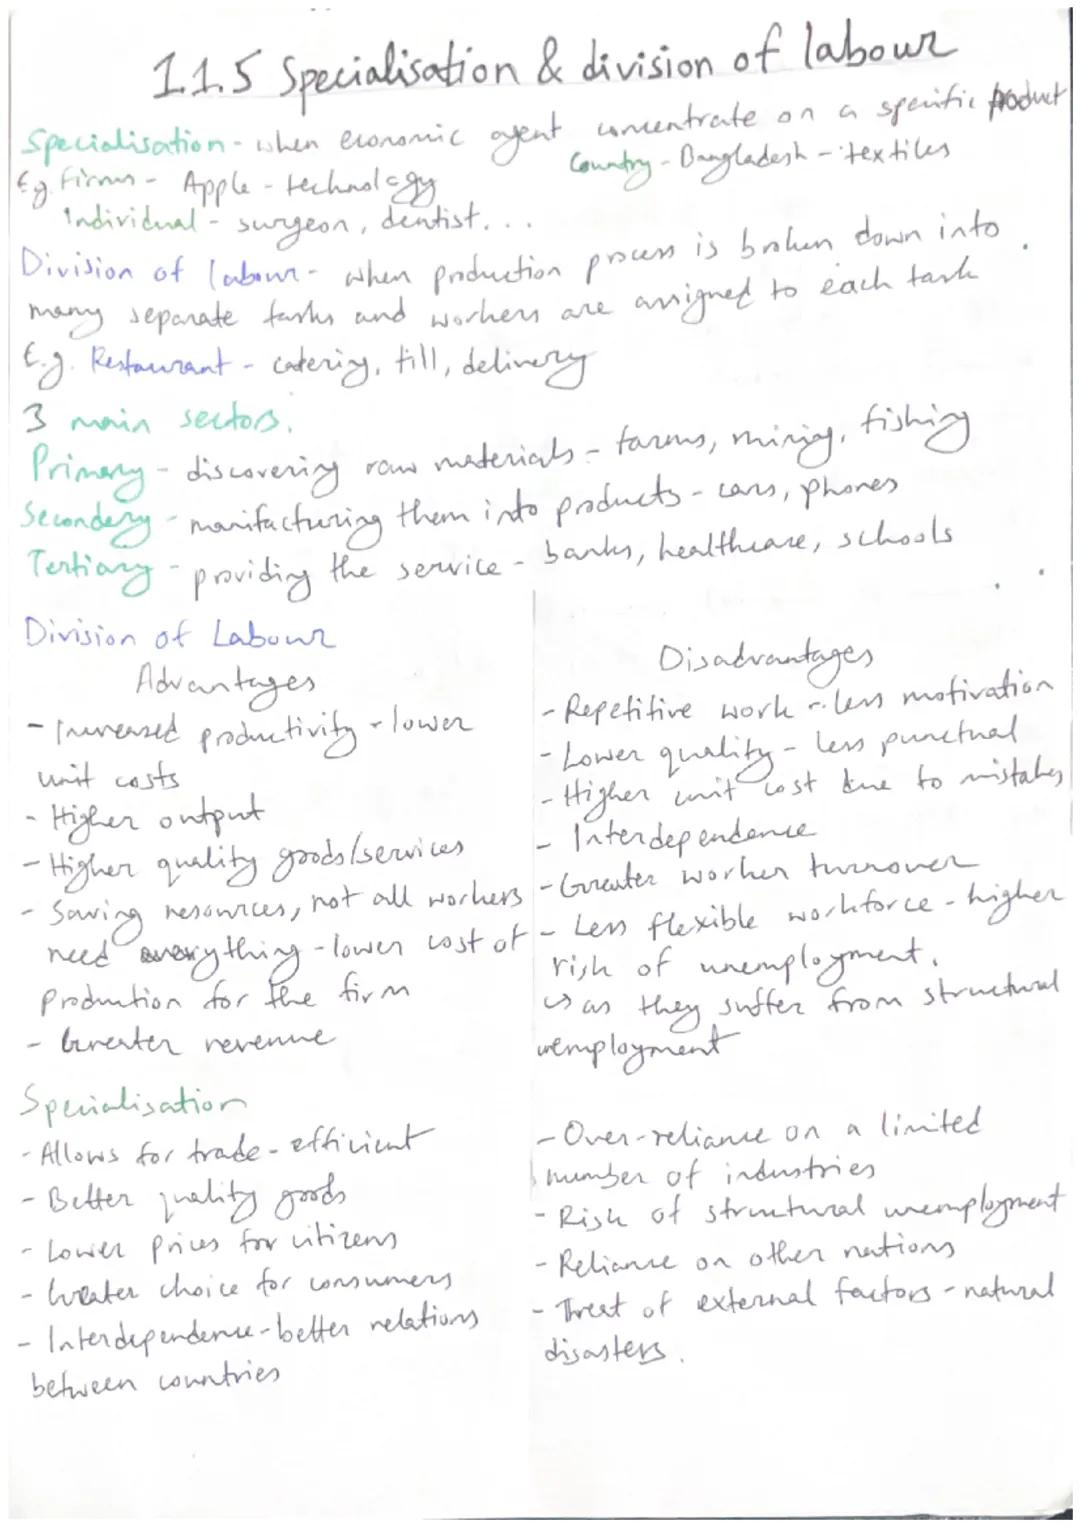 1.1.5 Specialisation & division of labour
Specialisation - when economic agent concentrate on a specific product
Eg. firms - Apple - technology
Country - Bangladesh - textiles
Individual - surgeon, dentist...
Division of labour - when production process is broken down into
many separate tasks and workers are assigned to each task
E.g. Restaurant - catering, till, delivery
3 main sectors.
Primary - discovering raw materials - farms, mining, fishing
Secondary - manifacturing them into products - cars, phones
Tertiary - providing the service - banks, healthcare, schools
Division of Labour
Advantages
- Increased productivity - lower
unit costs
- Higher output
- Higher quality goods/services
- Saving resources, not all workers
need everything - lower cost of
production for the firm
- Greater revenue
Disadvantages
- Repetitive work - less motivation
- Lower quality - less punctual
- Higher unit cost due to mistakes
- Interdependence
- Greater worker turnover
- Less flexible workforce - higher
risk of unemployment.
↳ as they suffer from structural
unemployment
Specialisation
- Allows for trade - efficient
- Better quality goods
- Lower prices for citizens
- Greater choice for consumers
- Interdependence - better relations
between countries
- Over-reliance on a limited
number of industries
- Risk of structural unemployment
- Reliance on other nations
- Threat of external factors - natural
disasters.